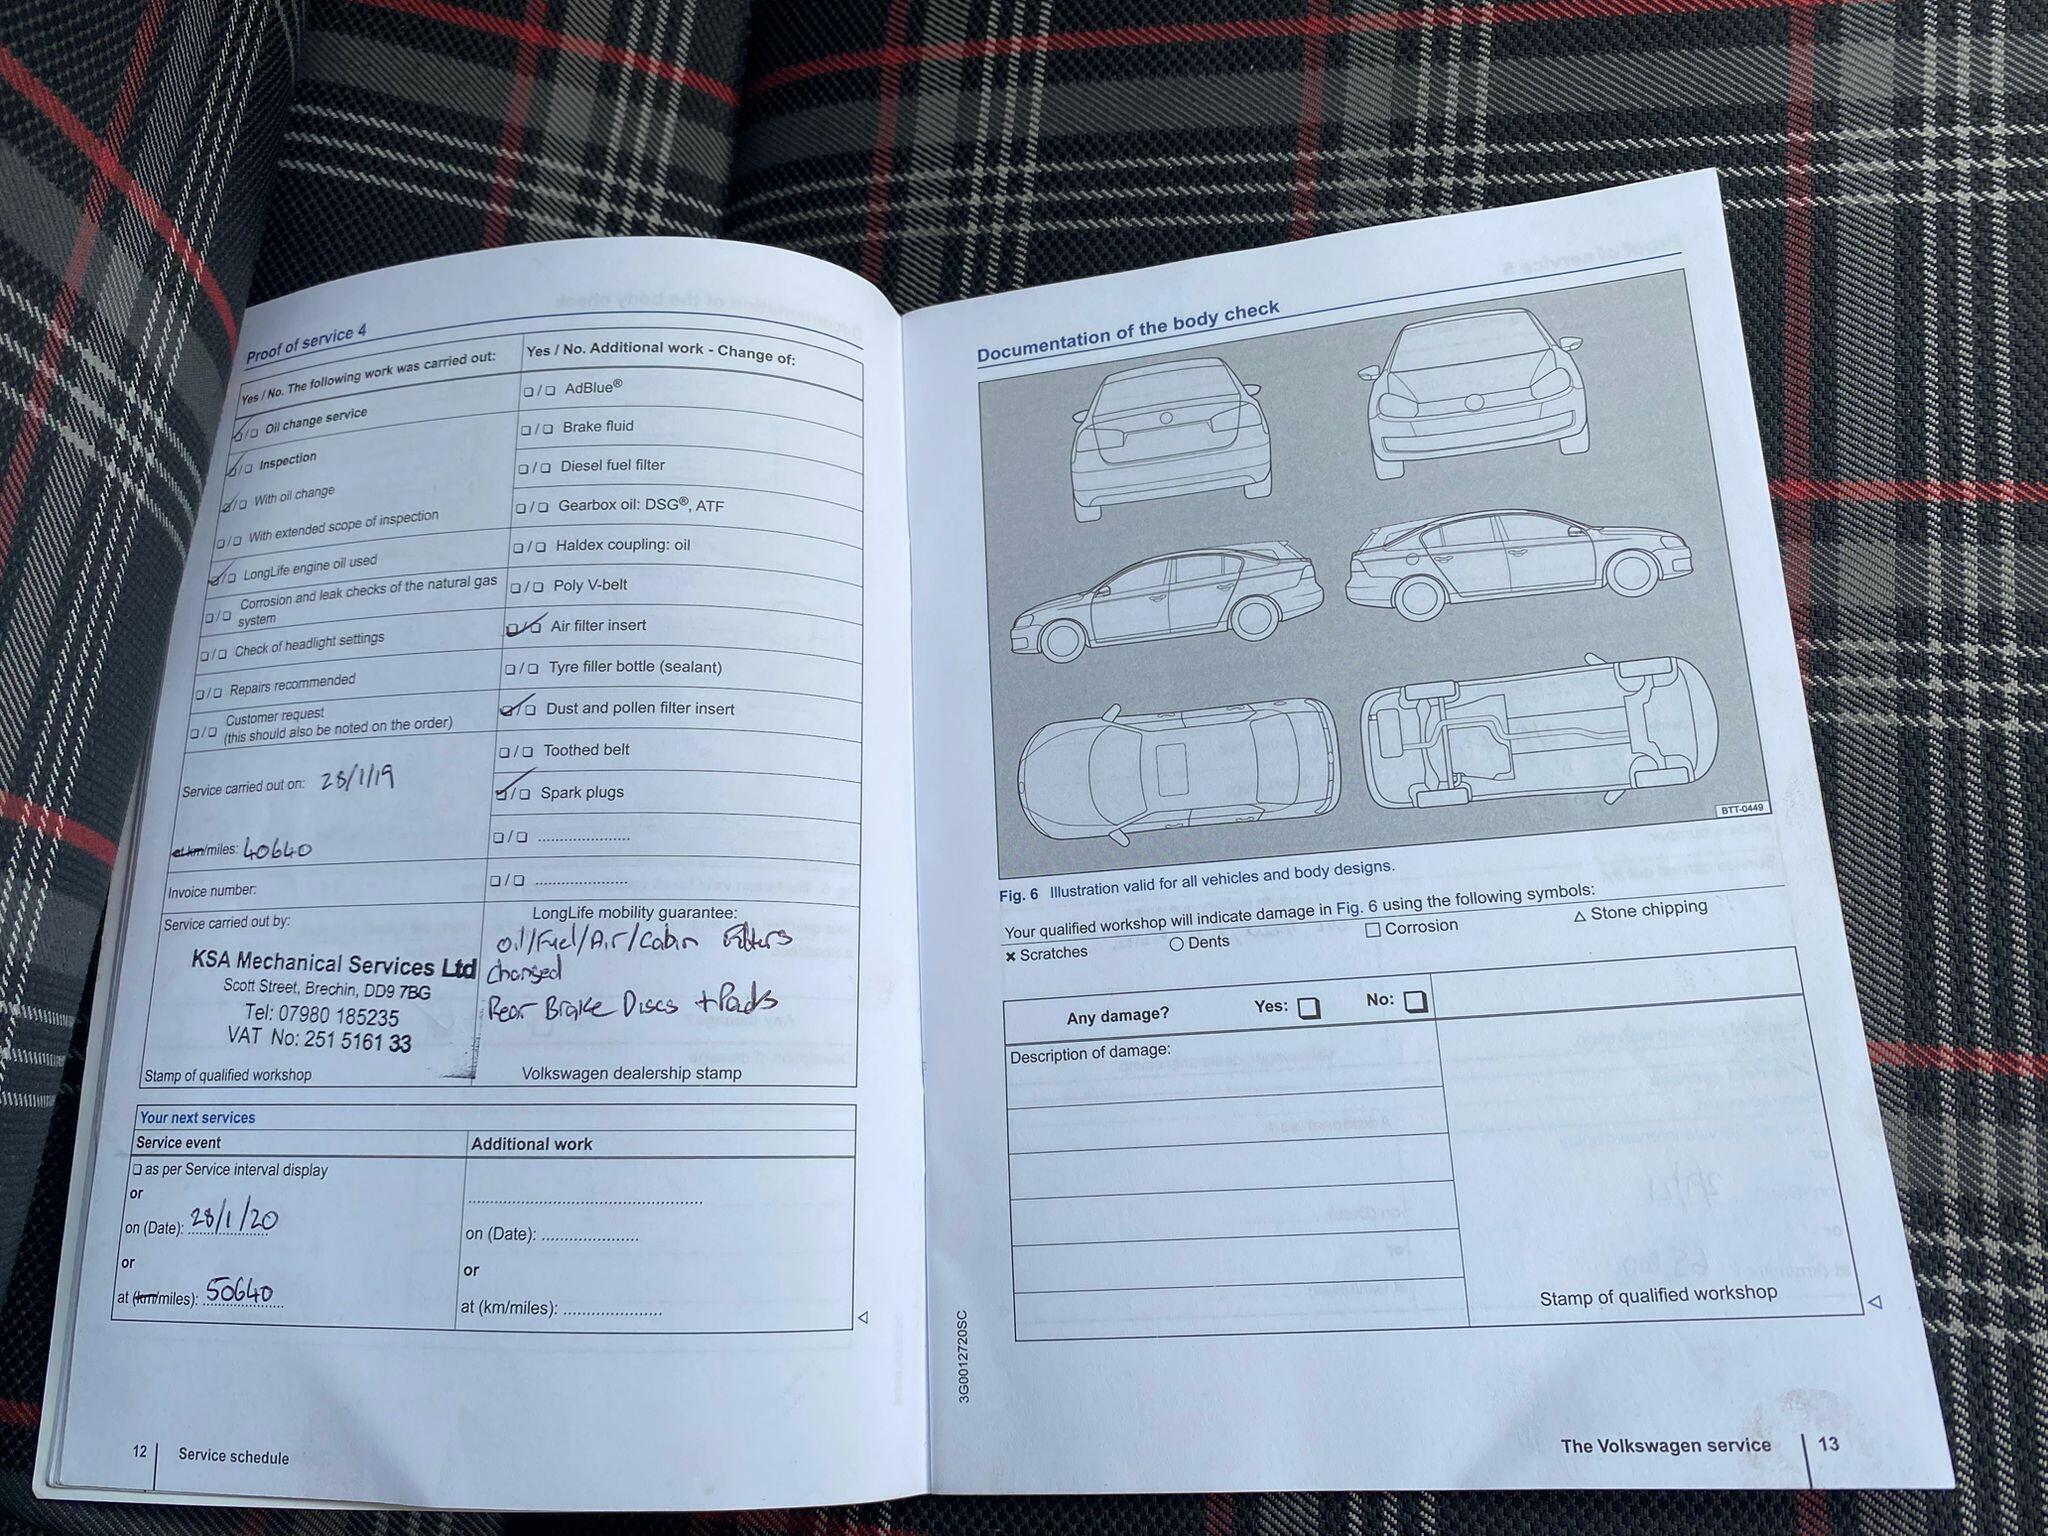 Proof of service 4
Yes / No. The following work was carried out:
☑/☐ Oil change service
☑/☐ Inspection
☑/☐ With oil change
☐/☐ With extended scope of inspection
☑/☐ LongLife engine oil used
☐/☐ Corrosion and leak checks of the natural gas
system
☐/☐ Check of headlight settings
☐/☐ Repairs recommended
☐/☐ Customer request
(this should also be noted on the order)
Service carried out on: 28/1/19
at km/miles: 40640
Invoice number:
Service carried out by:
KSA Mechanical Services Ltd
Scott Street, Brechin, DD9 7BG
Tel: 07980 185235
VAT No: 251 5161 33
Stamp of qualified workshop
Yes / No. Additional work - Change of:
☐/☐ AdBlue®
☐/☐ Brake fluid
☐/☐ Diesel fuel filter
☐/☐ Gearbox oil: DSG®, ATF
☐/☐ Haldex coupling: oil
☐/☐ Poly V-belt
☑/☐ Air filter insert
☐/☐ Tyre filler bottle (sealant)
☑/☐ Dust and pollen filter insert
☐/☐ Toothed belt
☑/☐ Spark plugs
☐/☐ ......................
☐/☐ ......................
LongLife mobility guarantee:
Oil/Fuel/Air/Cabin Filters
changed
Rear Brake Discs + Pads
Volkswagen dealership stamp
Your next services
Service event
☐ as per Service interval display
or
on (Date): 28/1/20
or
at (km/miles): 50640
Additional work
......................................................
on (Date): ......................
or
at (km/miles): ......................
12 Service schedule
Documentation of the body check
BTT-0449
Fig. 6 Illustration valid for all vehicles and body designs.
Your qualified workshop will indicate damage in Fig. 6 using the following symbols:
× Scratches ○ Dents □ Corrosion △ Stone chipping
Any damage? Yes: ☐ No: ☐
Description of damage:
Stamp of qualified workshop
3G0012720SC
The Volkswagen service 13